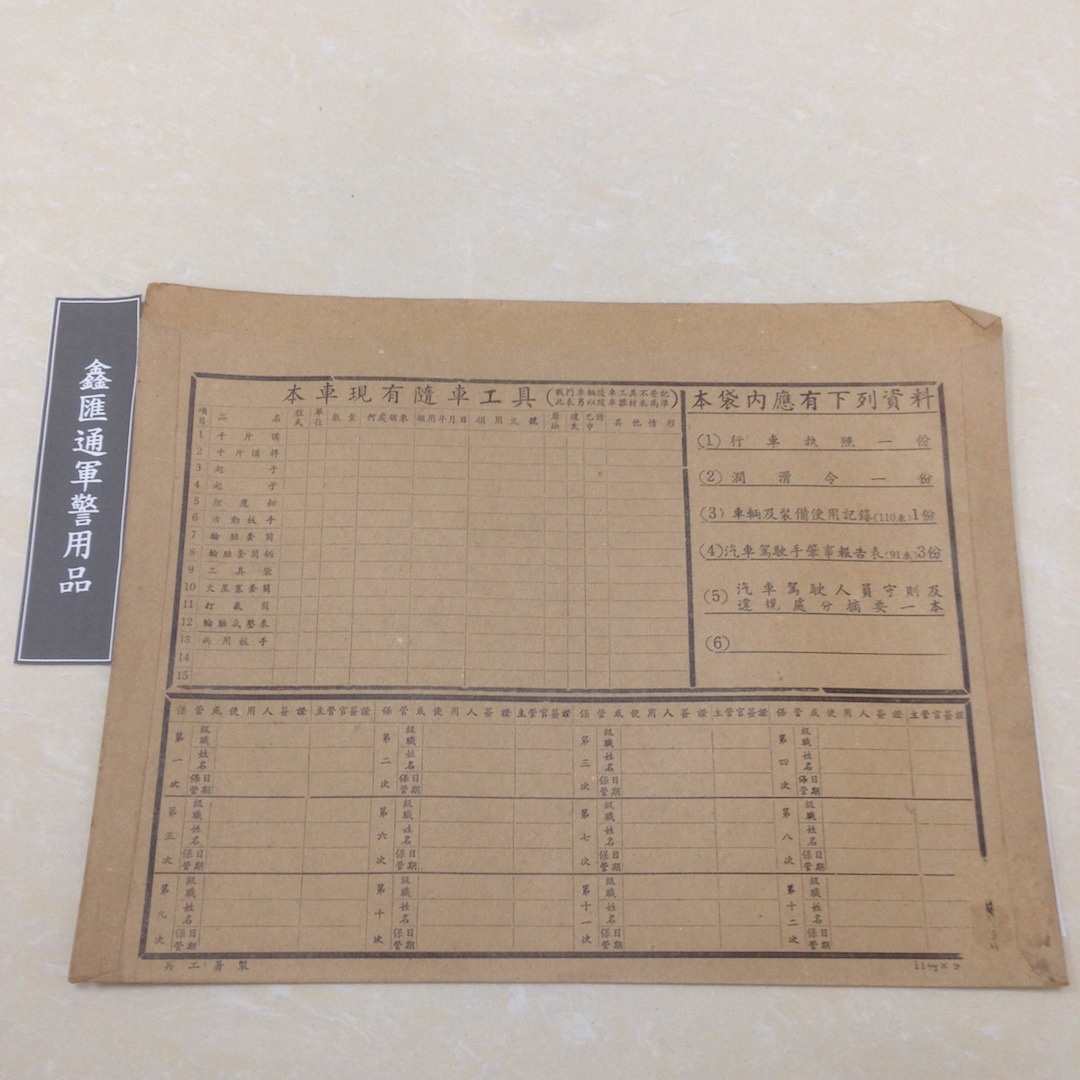 鑫匯通軍警用品
本車現有隨車工具(戰鬥車輛隨車工具不登記此表另以隨車器材表為準)
項目 品名 程式 單位 數量 何處領來 領用年月日 領用文號 原缺 遺失 已請申 其他情形
1 千斤頂
2 千斤頂桿
3 起子
4 起子
5 鯉魚鉗
6 活動扳手
7 輪胎套筒
8 輪胎套筒柄
9 工具袋
10 火星塞套筒
11 打氣筒
12 輪胎氣壓表
13 兩用扳手
14
15
本袋內應有下列資料
(1)行車執照一份
(2)潤滑令一份
(3)車輛及裝備使用記錄(110表)1份
(4)汽車駕駛手肇事報告表(91表)3份
(5)汽車駕駛人員守則及
違規處分摘要一本
(6)
保管或使用人簽證 主管官簽證 保管或使用人簽證 主管官簽證 保管或使用人簽證 主管官簽證 保管或使用人簽證 主管官簽證
第一次 級職 姓名 保管日期 第二次 級職 姓名 保管日期 第三次 級職 姓名 保管日期 第四次 級職 姓名 保管日期
第五次 級職 姓名 保管日期 第六次 級職 姓名 保管日期 第七次 級職 姓名 保管日期 第八次 級職 姓名 保管日期
第九次 級職 姓名 保管日期 第十次 級職 姓名 保管日期 第十一次 級職 姓名 保管日期 第十二次 級職 姓名 保管日期
兵工署製